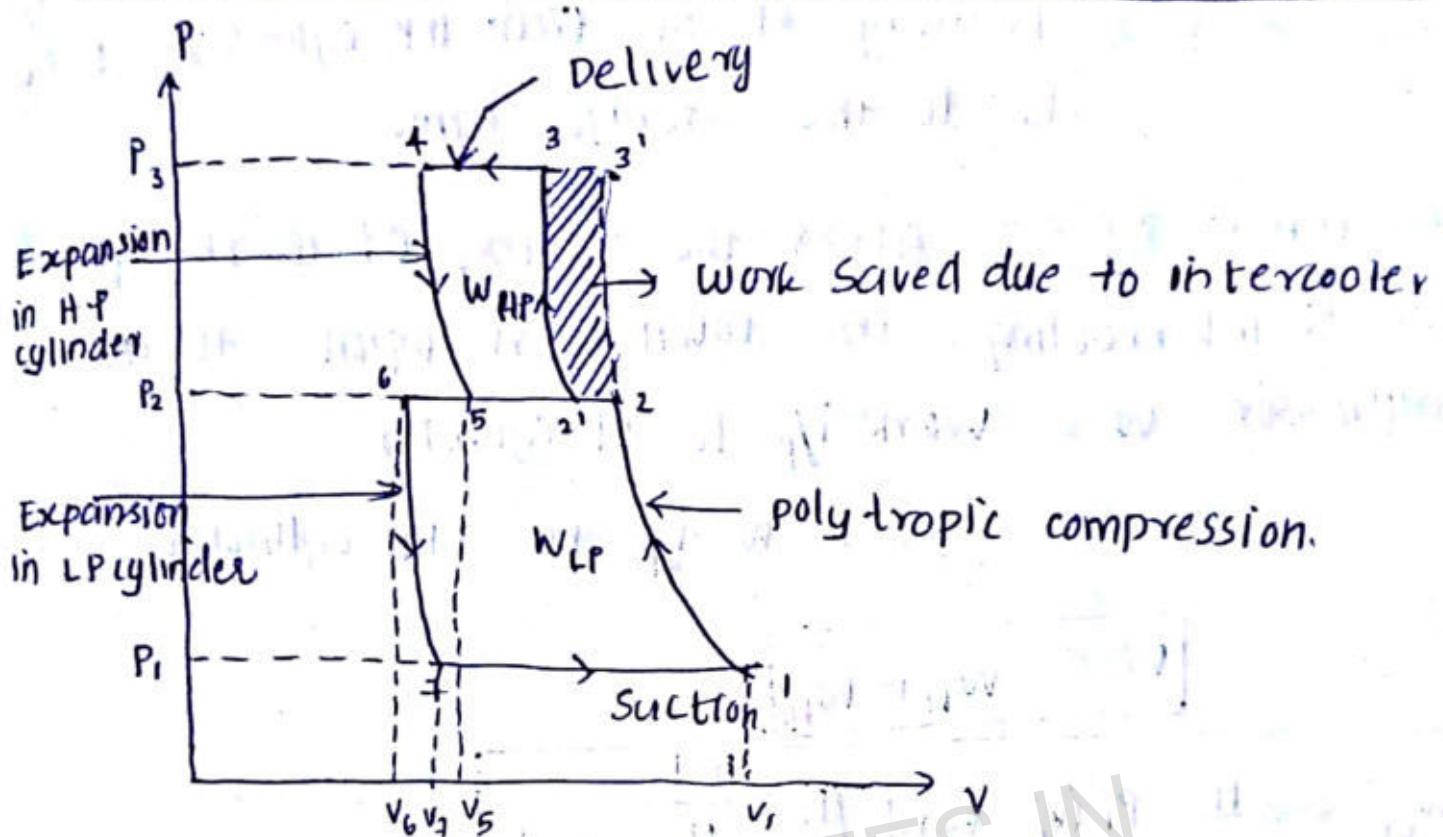 P
Delivery
P3
4
3
3'
Expansion
in H-P
cylinder
WHP
Work saved due to intercooler
P2
6
5
2'
2
Expansion
in LP cylinder
WLP
polytropic compression.
P1
7
Suction
1
V6 V7 V5
V1
V